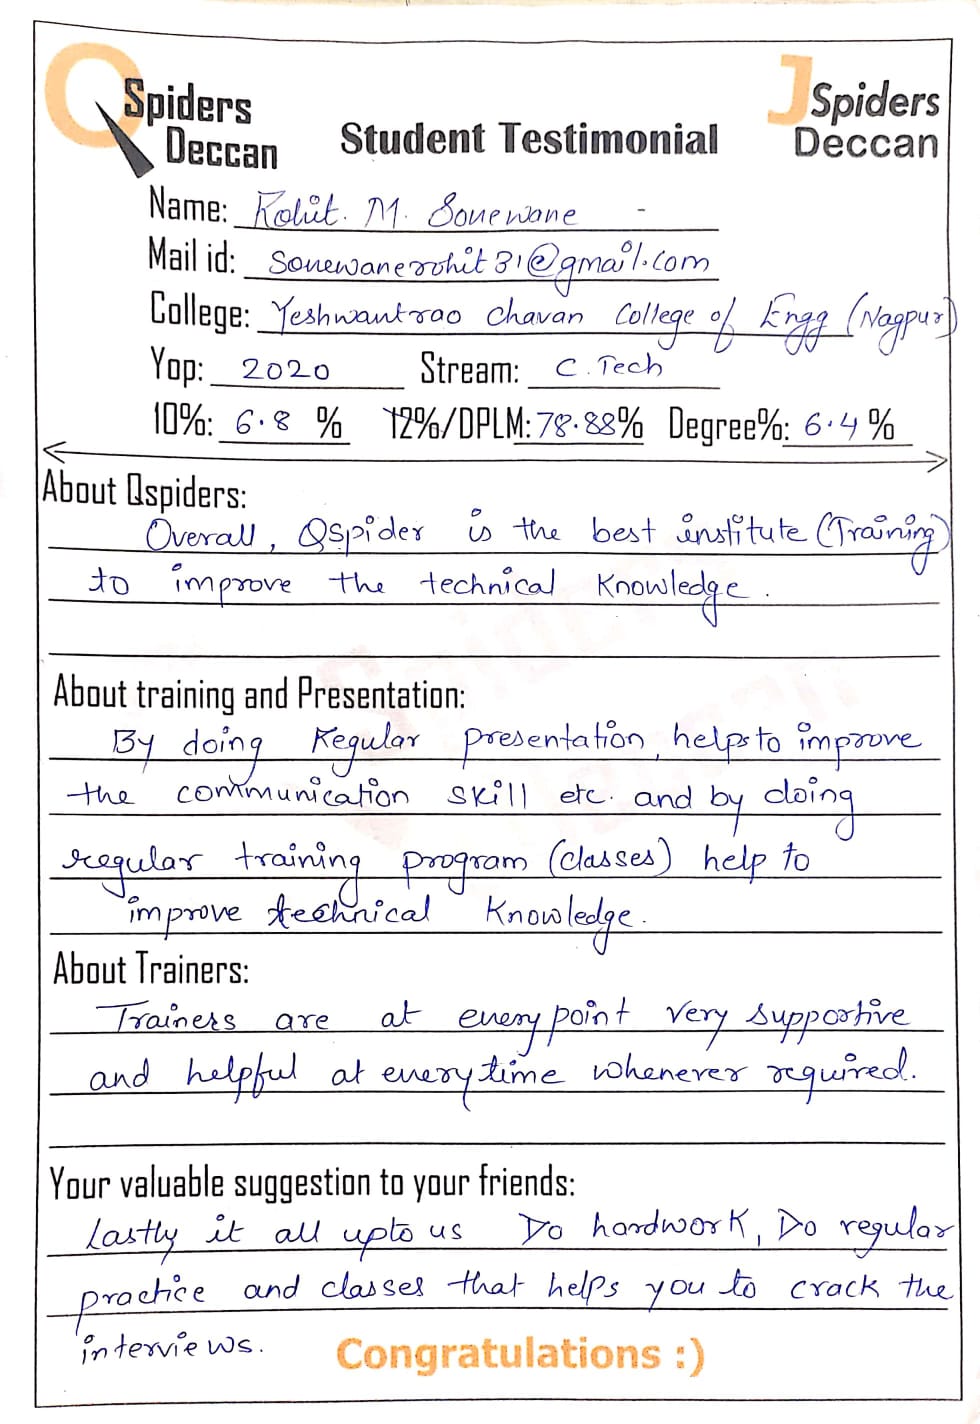 QSpiders
Deccan
Student Testimonial
JSpiders
Deccan
Name: Rohit. M. Sonewane -
Mail id: sonewanerohit31@gmail.com
College: Yeshwantrao Chavan College of Engg (Nagpur)
Yop: 2020 Stream: C.Tech
10%: 6.8 % 12%/DPLM: 78.88% Degree%: 6.4 %
About Qspiders:
Overall, QSpider is the best institute (Training)
to improve the technical Knowledge.
About training and Presentation:
By doing Regular presentation, helps to improve
the communication skill etc. and by doing
regular training program (classes) help to
improve technical Knowledge.
About Trainers:
Trainers are at every point very supportive
and helpful at every time whenever required.
Your valuable suggestion to your friends:
Lastly it all upto us Do hardwork, Do regular
practice and classes that helps you to crack the
interviews.
Congratulations :)